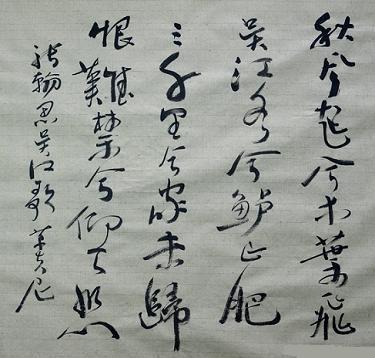 秋風起兮木葉飛
吳江水兮鱸正肥
三千里兮家未歸
恨難禁兮仰天悲
張翰思吳江歌